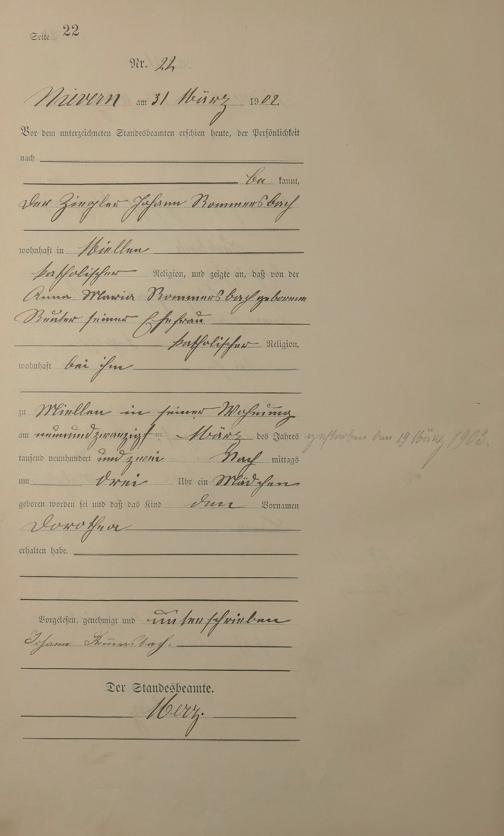 Seite 22
Nr. 22
Nievern am 31 März 1902
Vor dem unterzeichneten Standesbeamten erschien heute, der Persönlichkeit
nach
be kannt,
der Ziegler Johann Rommersbach
wohnhaft in Miellen
katholischer Religion, und zeigte an, daß von der
Anna Maria Rommersbach geborene
Reuter seiner Ehefrau
katholischer Religion,
wohnhaft bei ihm
zu Miellen in seiner Wohnung
am neunundzwanzigst en März des Jahres gestorben den 19 März 1903.
tausend neunhundert und zwei Nach mittags
um drei Uhr ein Mädchen
geboren worden sei und daß das Kind den Vornamen
Dorothea
erhalten habe.
Vorgelesen, genehmigt und unterschrieben
Johann
Der Standesbeamte.
Merz.